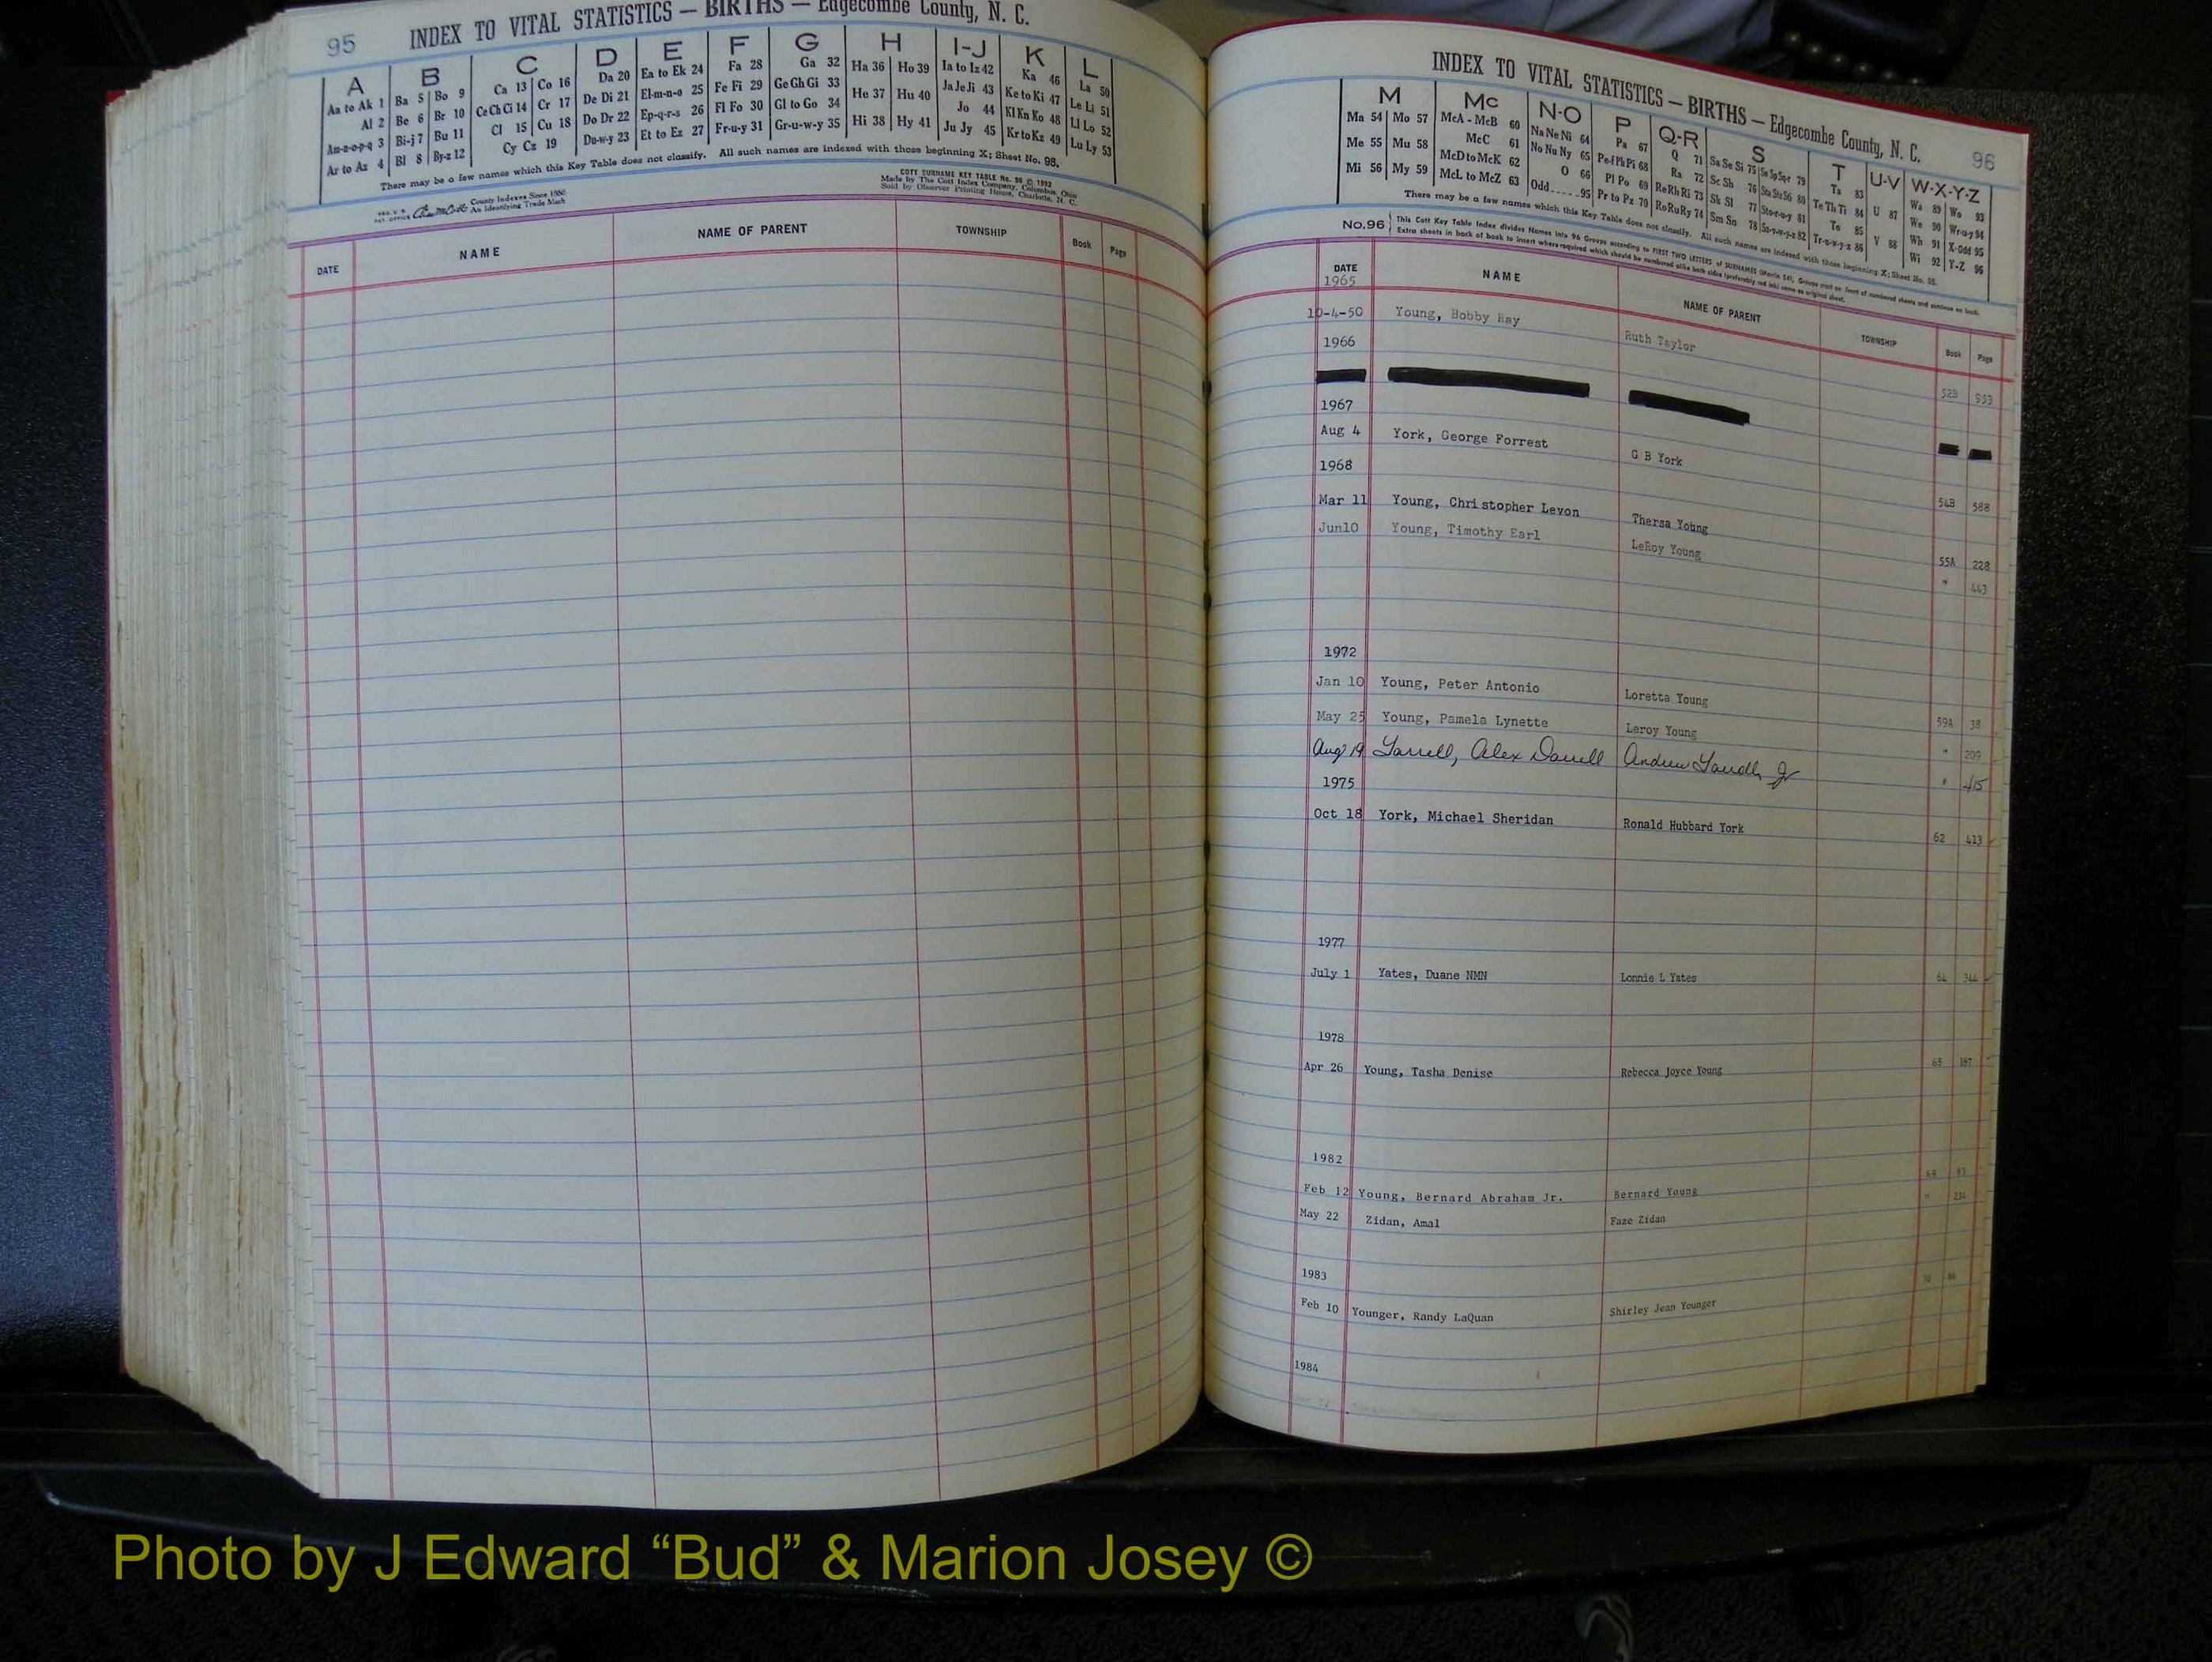 95 INDEX TO VITAL STATISTICS — BIRTHS — Edgecombe County, N. C.
A B C D E F G H I-J K L
Aa to Ak 1 Ba 5 Bo 9 Ca 13 Co 16 Da 20 Ea to Ek 24 Fa 28 Ga 32 Ha 36 Ho 39 Ia to Iz 42 Ka 46 La 50
Al 2 Be 6 Br 10 Ce Ch Ci 14 Cr 17 De Di 21 El-m-n-o 25 Fe Fi 29 Ge Gh Gi 33 He 37 Hu 40 Ja Je Ji 43 Ke to Ki 47 Le Li 51
Am-n-o-p-q 3 Bi-j 7 Bu 11 Cl 15 Cu 18 Do Dr 22 Ep-q-r-s 26 Fl Fo 30 Gl to Go 34 Hi 38 Hy 41 Jo 44 Kl Kn Ko 48 Ll Lo 52
Ar to Az 4 Bl 8 By-z 12 Cy Cz 19 Du-w-y 23 Et to Ez 27 Fr-u-y 31 Gr-u-w-y 35 Ju Jy 45 Kr to Kz 49 Lu Ly 53
There may be a few names which this Key Table does not classify. All such names are indexed with those beginning X; Sheet No. 95.
County Indexes Since 1888
An Identifying Trade Mark
COTT SURNAME KEY TABLE No. 96 ©
Made by The Cott Index Company, Columbus, Ohio
Sold by Observer Printing House, Charlotte, N. C.
DATE NAME NAME OF PARENT TOWNSHIP Book Page
INDEX TO VITAL STATISTICS — BIRTHS — Edgecombe County, N. C. 96
M Mc N-O P Q-R S T U-V W-X-Y-Z
Ma 54 Mo 57 McA - McB 60 Na Ne Ni 64 Pa 67 Q 71 Sa Se Si 75 So Sp Sq-r 79 Ta 83 U 87 Wa 89 Wo 93
Me 55 Mu 58 McC 61 No Nu Ny 65 Pe-f Ph Pi 68 Ra 72 Sc Sh 76 Te Th Ti 84 V 88 We 90 Wr-u-y 94
Mi 56 My 59 McD to McK 62 O 66 Pl Po 69 Re Rh Ri 73 Sk Sl 77 Sto-r-u-y 81 To 85 Wh 91 X-Odd 95
McL to McZ 63 Odd 95 Pr to Pz 70 Ro Ru Ry 74 Sm Sn 78 82 Tr-u-w-y-z 86 Wi 92 Y-Z 96
There may be a few names which this Key Table does not classify. All such names are indexed with those beginning X; Sheet No. 95.
No.96 This Cott Key Table Index divides Names into 96 Groups according to FIRST TWO LETTERS of SURNAMES
DATE NAME NAME OF PARENT TOWNSHIP Book Page
1965
10-4-50 Young, Bobby Ray Ruth Taylor 52B 953
1966
1967
Aug 4 York, George Forrest G B York 54B 588
1968
Mar 11 Young, Christopher Levon Thersa Young 55A 228
Jun10 Young, Timothy Earl LeRoy Young " 443
1972
Jan 10 Young, Peter Antonio Loretta Young 59A 38
May 25 Young, Pamela Lynette Leroy Young " 209
Aug 19 Yarrell, Alex Darrell Andrew Yarrell, Jr " 415
1975
Oct 18 York, Michael Sheridan Ronald Hubbard York 62 413
1977
July 1 Yates, Duane NMN Lonnie L Yates 64 344
1978
Apr 26 Young, Tasha Denise Rebecca Joyce Young 65 187
1982
Feb 12 Young, Bernard Abraham Jr. Bernard Young 69 93
May 22 Zidan, Amal Faze Zidan " 234
1983
Feb 10 Younger, Randy LaQuan Shirley Jean Younger 70
1984
Photo by J Edward “Bud” & Marion Josey ©